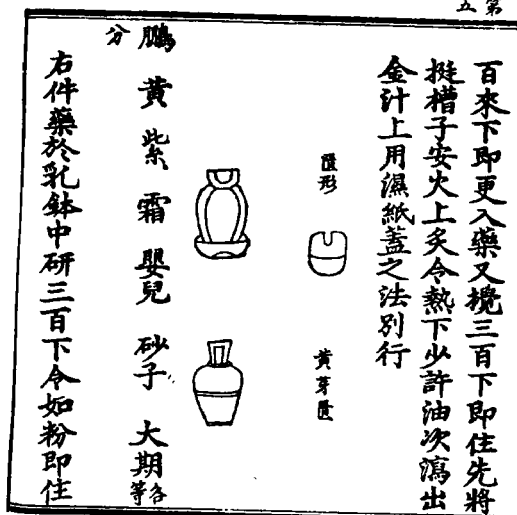 第
五
百來下即更入藥又攪三百下即住先將
挺槽子安火上炙令熱下少許油次瀉出
金汁上用濕紙蓋之法別行
匱形
黃芽匱
鵬 黃 紫 霜 嬰兒 砂子 大期各等
分
右件藥於乳鉢中研三百下令如粉即住